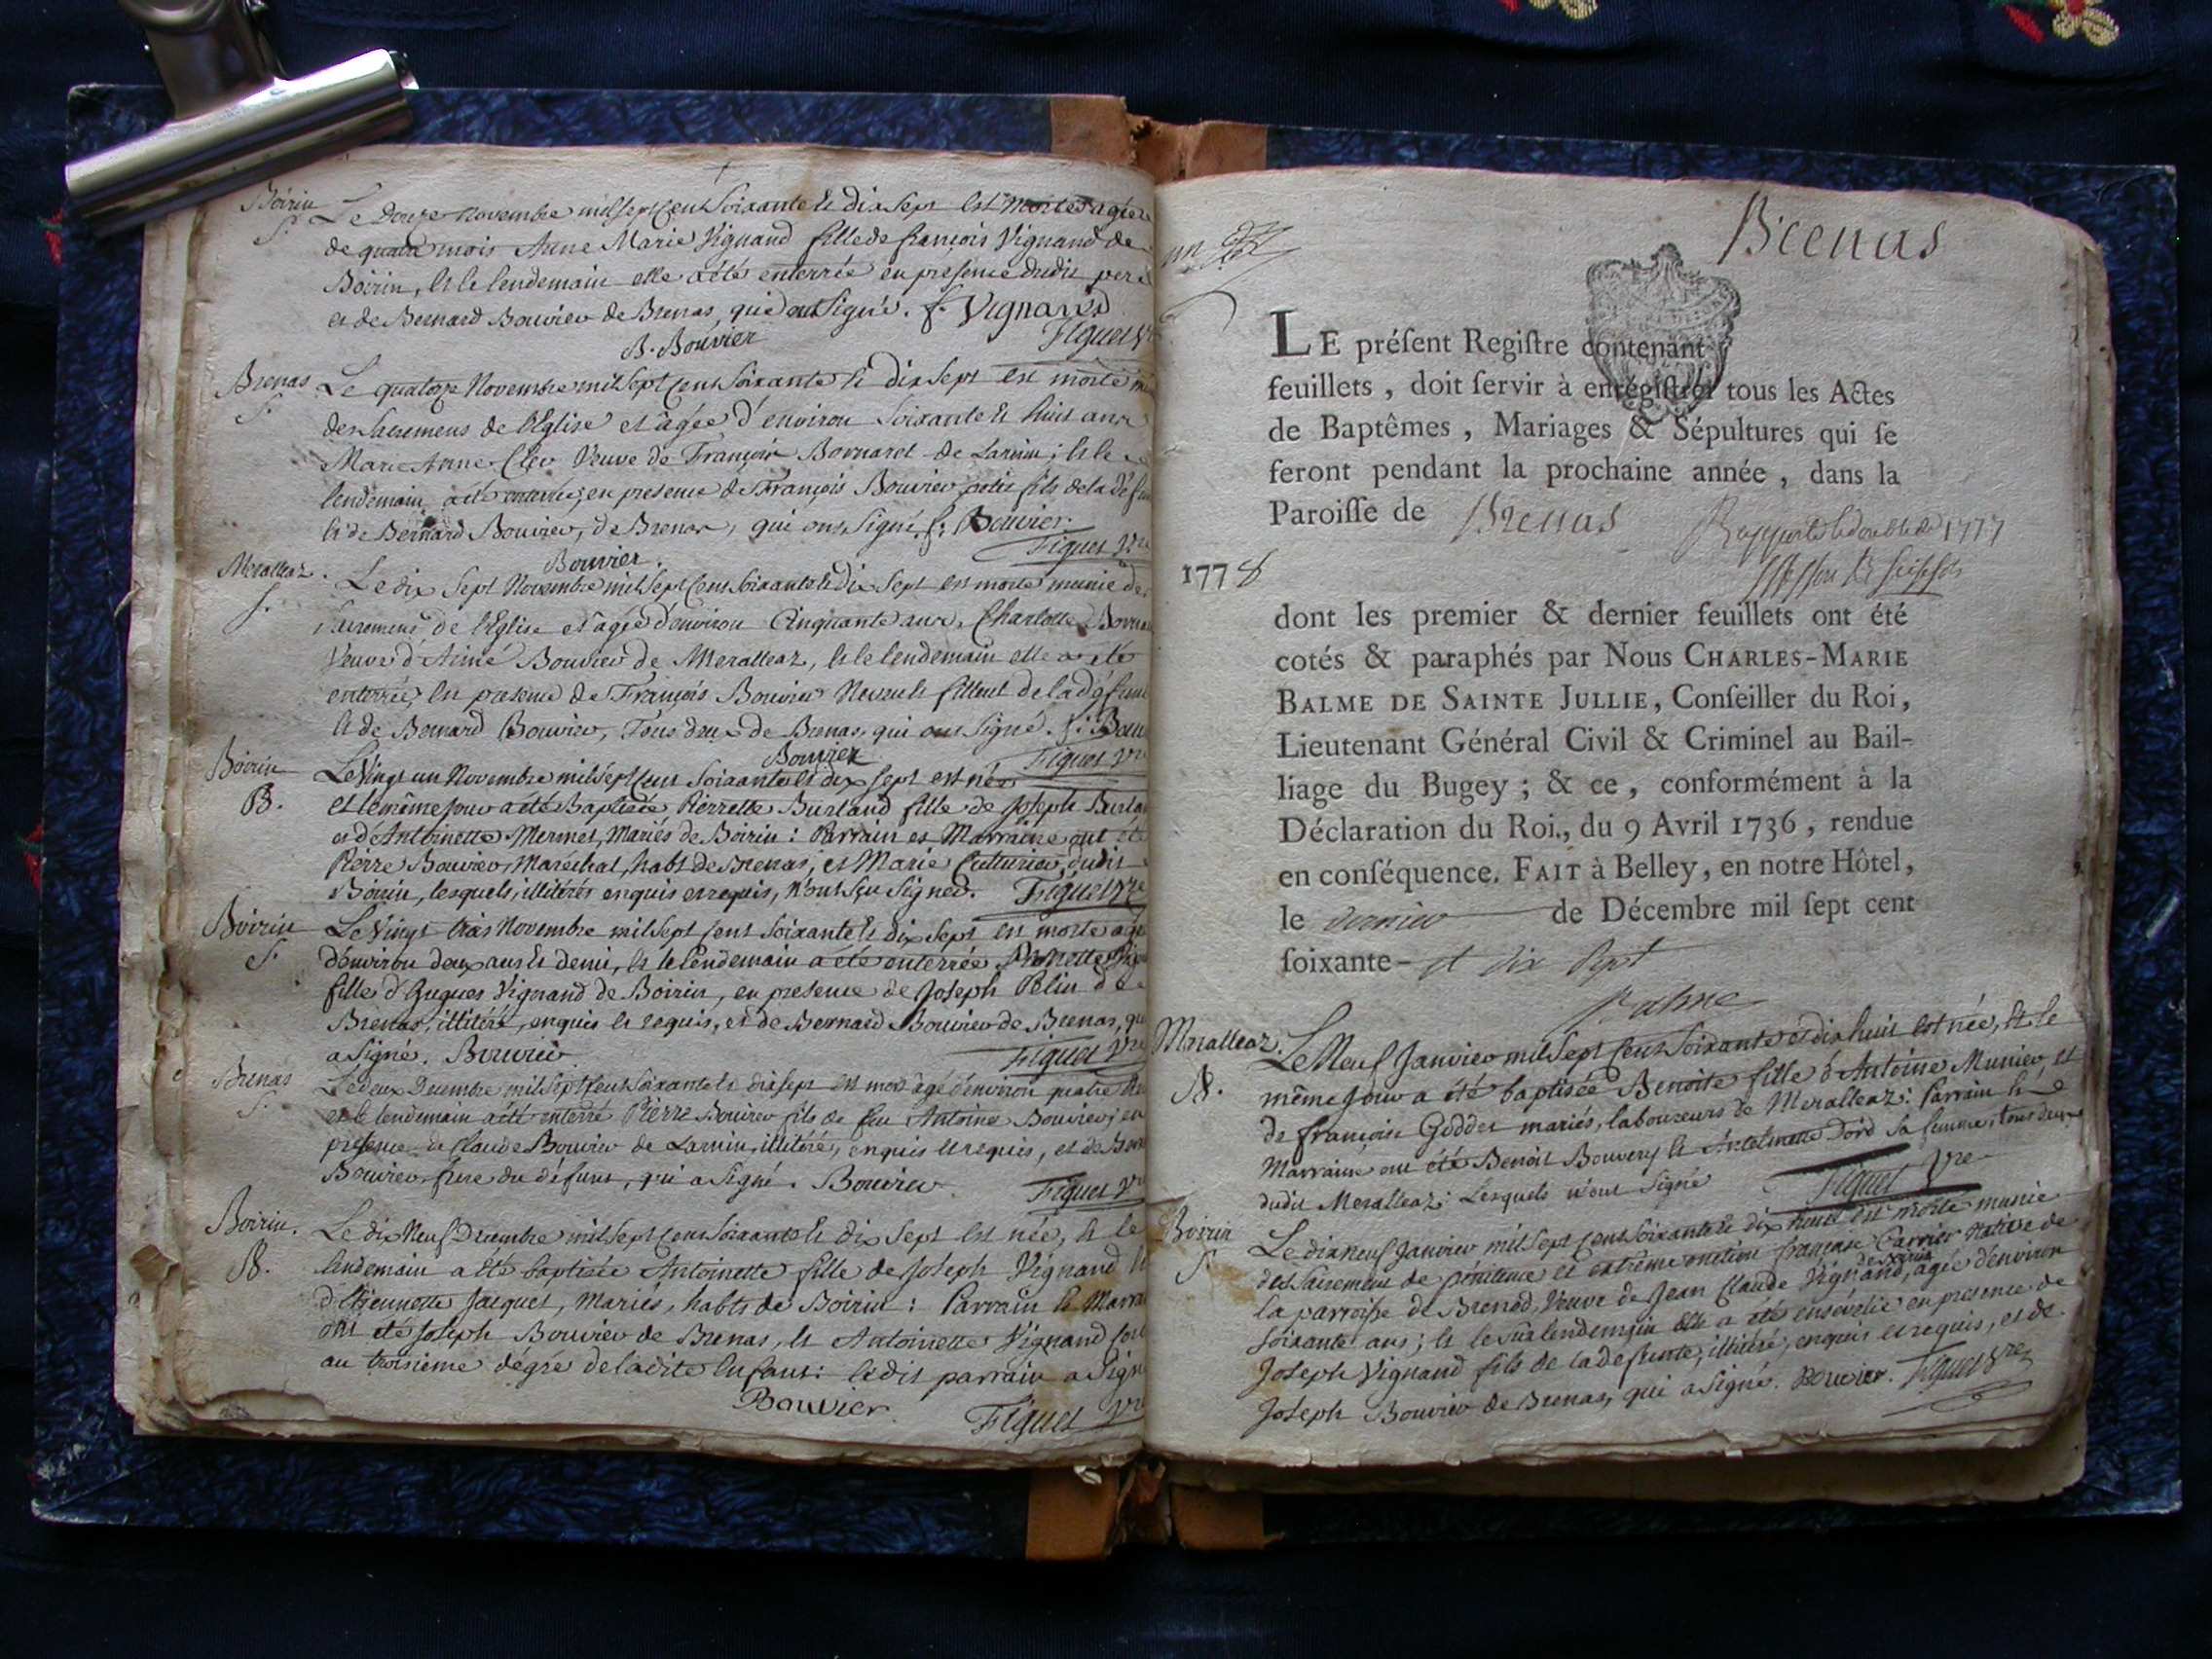 Boirin
S.
Le Douze Novembre mil sept cent Soixante et dix sept est morte agée
de quatre mois Anne Marie Vignand fille de françois Vignand de
Boirin, et le lendemain elle a été enterrée en presence dudit pere
et de Bernard Bouvier de Brenas, qui ont Signé. f. Vignand
B. Bouvier
Figuet Vre
Brenas
S.
Le quatorze Novembre mil sept cent Soixante et dix sept est morte
des Sacremens de l'Eglise et agée d'environ Soixante et huit ans
Marie Anne Veuve de François Bornaret de Larnin; et le
lendemain a été enterrée, en presence de François Bouvier petit fils de la
et de Bernard Bouvier, de Brenas, qui ont Signé. f: Bouvier.
Bouvier.
Figuet Vre
Meralleaz.
S.
Le dix Sept Novembre mil sept cent Soixante et dix Sept est morte munie des
Sacremens de l'Eglise et agée d'environ Cinquante ans, Charlotte
Veuve d'Aimé Bouvier de Meralleaz, et le lendemain elle a été
enterrée, en presence de François Bouvier Neveu et filleul de la
et de Bernard Bouvier, Tous deux de Brenas, qui ont Signé. f:
Bouvier
Figuet Vre
Boirin
B.
Le Vingt un Novembre mil sept cent Soixante et dix sept est née
et le même jour a été Baptisée Pierrette Burland fille de Joseph
et d'Antoinette Mermet, Mariés de Boirin: Parrain et Marraine ont été
Pierre Bouvier, Maréchal, habt de Brenas, et Marie dudit
Boirin, lesquels, illitérés enquis et requis, n'ont sçu Signer. Figuet Vre
Boirin
S.
Le Vingt trois Novembre mil sept cent Soixante et dix sept est morte agée
d'environ deux ans et demi, et le lendemain a été enterrée
fille d'Hugues Vignand de Boirin, en presence de Joseph Pelin de
Brenas, illitéré, enquis et requis, et de Bernard Bouvier de Brenas, qui
a Signé. Bouvier
Figuet Vre
Brenas
S.
Le deux Decembre mil sept cent Soixante et dix sept est mort agé d'environ quatre
et le lendemain a été enterré Pierre Bouvier fils de feu Antoine Bouvier; en
presence de Claude Bouvier de Larnin, illitéré, enquis et requis, et de
Bouvier frere du défunt, qui a Signé. Bouvier
Figuet Vre
Boirin.
B.
Le dix Neuf Decembre mil sept cent Soixante et dix sept est née, et le
lendemain a été baptisée Antoinette fille de Joseph Vignand et
d'Etiennette Jacquet, Mariés, habts de Boirin: Parrain et
ont été Joseph Bouvier de Brenas, et Antoinette Vignand
au troisieme dégré de ladite Enfant: ledit parrain a Signé
Bouvier.
Figuet Vre
Brenas
LE préſent Regiſtre contenant
feuillets, doit ſervir à enrégiſtrer tous les Actes
de Baptêmes, Mariages & Sépultures qui ſe
feront pendant la prochaine année, dans la
Paroiſſe de Brenas
1777
1778
dont les premier & dernier feuillets ont été
cotés & paraphés par Nous CHARLES-MARIE
BALME DE SAINTE JULLIE, Conſeiller du Roi,
Lieutenant Général Civil & Criminel au Bail-
liage du Bugey; & ce, conformément à la
Déclaration du Roi, du 9 Avril 1736, rendue
en conſéquence. FAIT à Belley, en notre Hôtel,
le dernier de Décembre mil ſept cent
ſoixante- et dix sept
Balme
Meralleaz.
B.
Le Neuf Janvier mil Sept Cent Soixante et dix huit est née, et le
même jour a été baptisée Benoite fille d'Antoine Munier, et
de françoise Goddet mariés, laboureurs de Meralleaz: Parrain et
Marraine ont été Benoit Bouvery et Antelmette Sa femme, tous deux
dudit Meralleaz: Lesquels n'ont Signé
Figuet Vre
Boirin
S.
Le dix neuf Janvier mil Sept cent Soixante et dix huit est morte munie
des Sacremens de pénitence et extrême onction françoise Carrier Native de
la parroisse de Brenod, Veuve de Jean Claude Vignand, de Boirin agée d'environ
Soixante ans; et le surlendemain elle a été ensévelie en presence de
Joseph Vignand fils de la defunte, illitéré, enquis et requis, et de
Joseph Bouvier de Brenas, qui a Signé. Bouvier. Figuet Vre